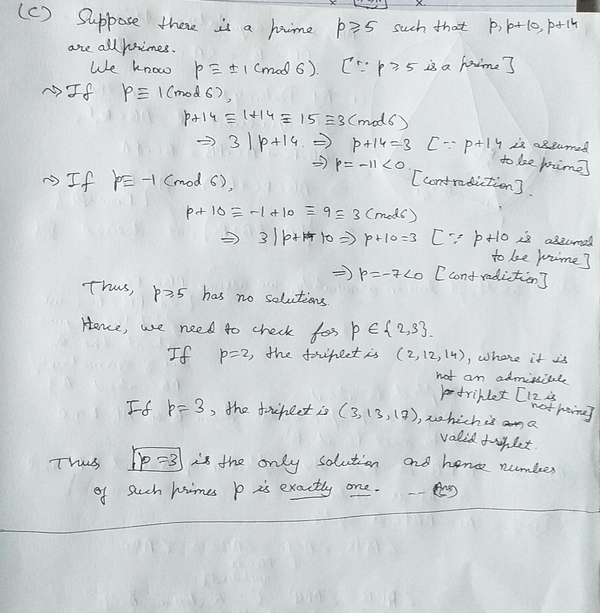 (C) Suppose there is a prime p ≥ 5 such that p, p+10, p+14
are all primes.
We know p ≡ ±1 (mod 6). [∵ p ≥ 5 is a prime]
⇝ If p ≡ 1 (mod 6),
p+14 ≡ 1+14 ≡ 15 ≡ 3 (mod 6)
⇒ 3 | p+14 ⇒ p+14 = 3 [∵ p+14 is assumed
to be prime]
⇒ p = -11 < 0
[contradiction].
⇝ If p ≡ -1 (mod 6),
p+10 ≡ -1+10 ≡ 9 ≡ 3 (mod 6)
⇒ 3 | p+10 ⇒ p+10 = 3 [∵ p+10 is assumed
to be prime]
⇒ p = -7 < 0 [contradiction]
Thus, p ≥ 5 has no solutions.
Hence, we need to check for p ∈ {2,3}.
If p=2, the triplet is (2,12,14), where it is
not an admissible
triplet [12 is
not prime]
If p=3, the triplet is (3,13,17), which is a
valid triplet.
Thus p=3 is the only solution and hence number
of such primes p is exactly one. — (Ans)